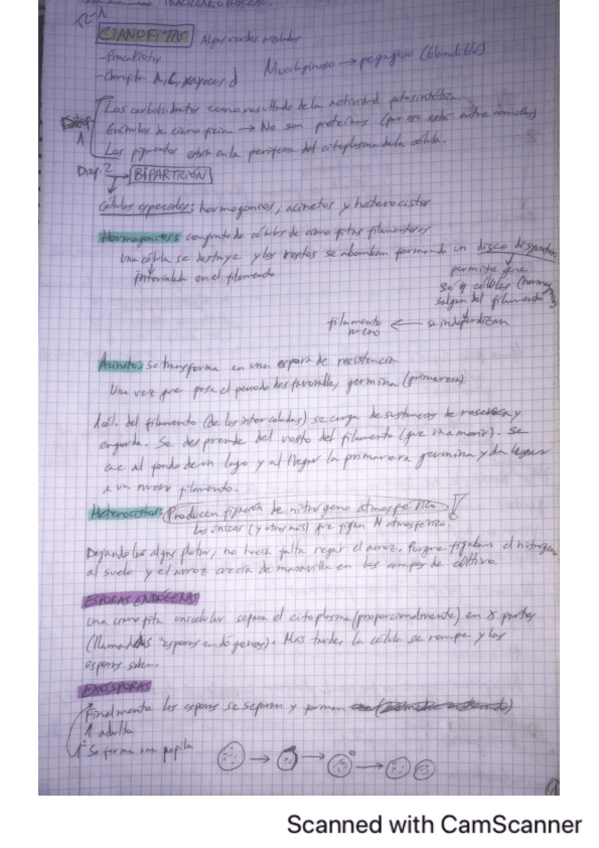 CIANOFITAS Algas verdes azuladas
- Procariotas
- Clorofila A, C,
Mucilaginoso → pegajoso (blandible)
Los carbohidratos como resultado de la actividad fotosintética
Gránulos de cianoficina → No son proteínas (por eso está entre comillas)
1 Los pigmentos están en la periferia del citoplasma de la célula.
2 → BIPARTICIÓN
Células especiales: hormogonios, acinetos y heterocistos
Hormogonios: conjunto de células de cianofitas filamentosas
Una célula se destruye y los restos se abomban formando un disco
intercalada en el filamento
permite que
3 o 4 células
salgan del filamento
filamento nuevo ← se independizan
Acineto: se transforma en una espora de resistencia
Una vez que pasa el periodo desfavorable, germina (primavera).
1 cél. del filamento (de las intercaladas) se carga de sustancias de reserva y
engorda. Se desprende del resto del filamento (que va a morir). Se
cae al fondo de un lago y al llegar la primavera germina y da lugar
a un nuevo filamento.
Heterocistos: Producen fijación de nitrógeno atmosférico
Las únicas (y otras más) que fijan N atmosférico.
Dejando las algas flotar, no hacía falta regar el arroz. Porque fijaban el nitrógeno
al suelo y el arroz crecía de maravilla en los campos de cultivo.
ESPORAS ENDÓGENAS
Una cianofita unicelular separa el citoplasma (proporcionalmente) en 8 partes
(llamadas "esporas endógenas). Más tarde, la célula se rompe y las
esporas salen.
EXOSPORAS
Finalmente las esporas se separan y forman
1 adulta
Se forma una papila
Scanned with CamScanner